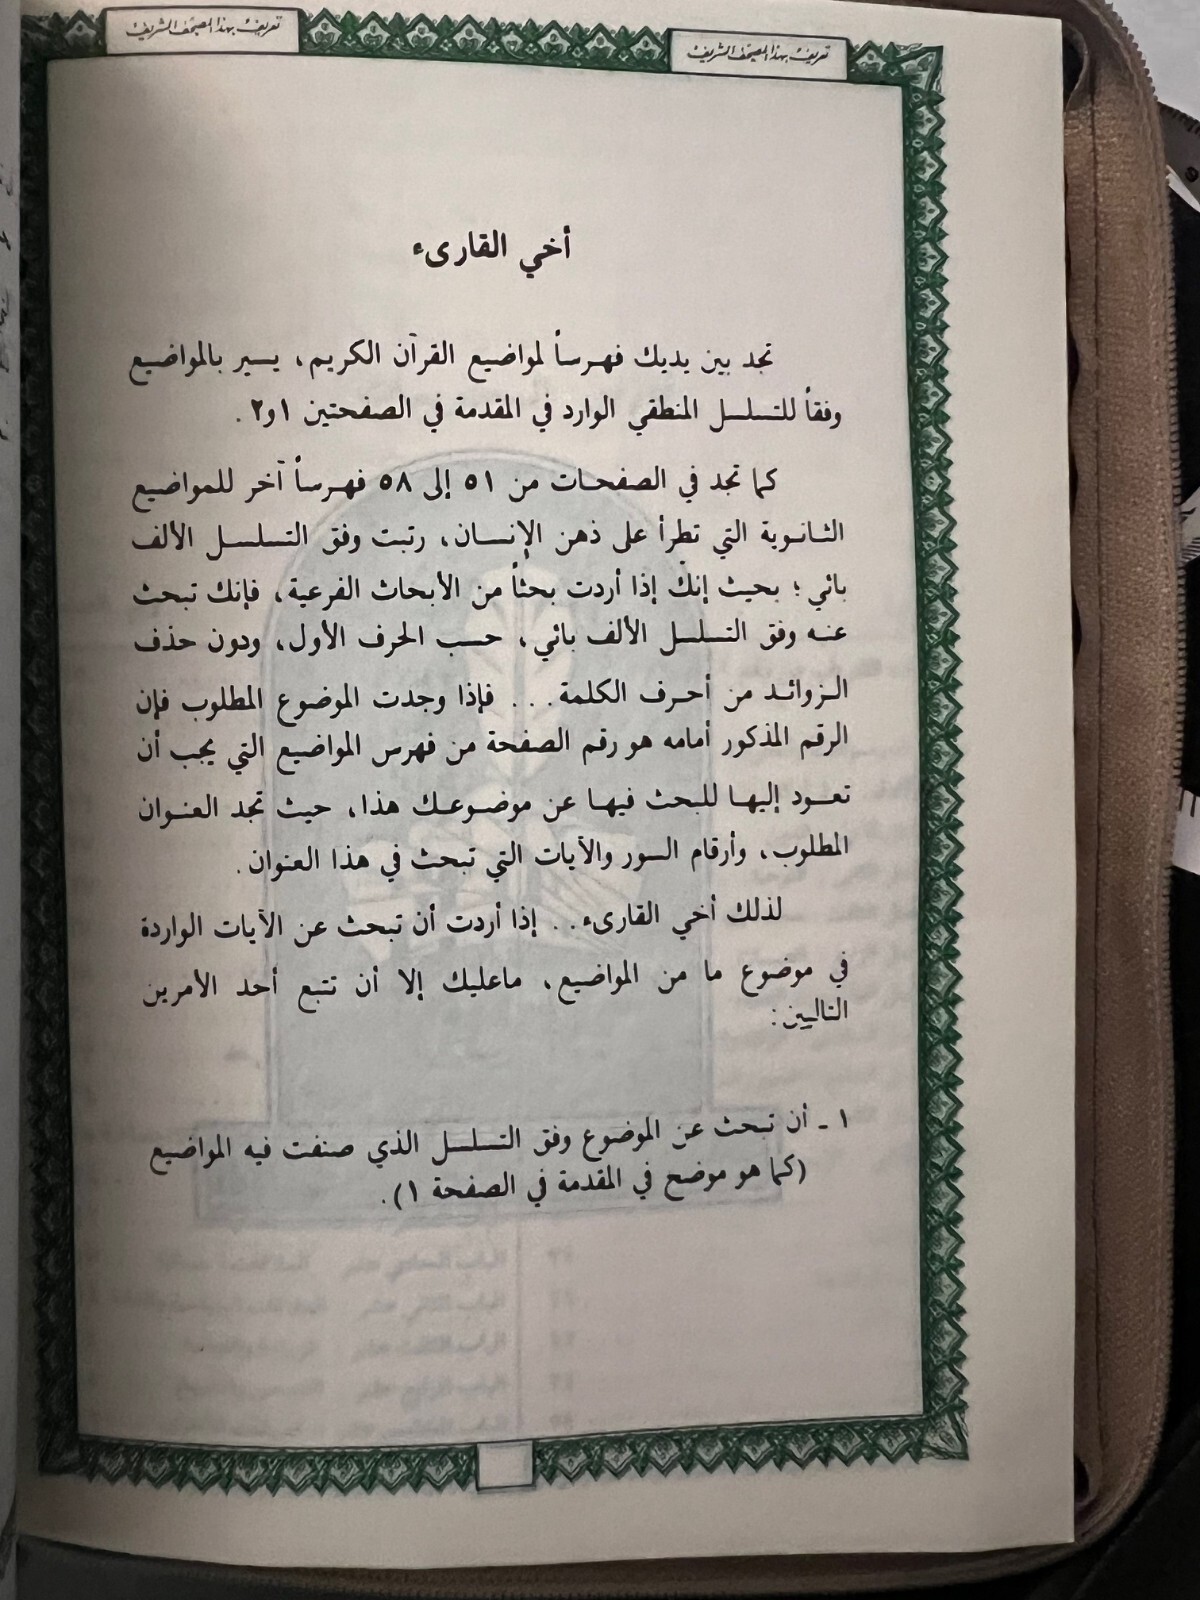 تعريف بهذا المصحف الشريف
تعريف بهذا المصحف الشريف
أخي القارىء
تجد بين يديك فهرساً لمواضيع القرآن الكريم، يسير بالمواضيع
وفقاً للتسلسل المنطقي الوارد في المقدمة في الصفحتين ١و٢ .
كما تجد في الصفحات من ٥١ إلى ٥٨ فهرساً آخر للمواضيع
الثانوية التي تطرأ على ذهن الإنسان، رتبت وفق التسلسل الألف
بائي ؛ بحيث إنك إذا أردت بحثاً من الأبحاث الفرعية، فإنك تبحث
عنه وفق التسلسل الألف بائي، حسب الحرف الأول، ودون حذف
الزوائد من أحرف الكلمة... فإذا وجدت الموضوع المطلوب فإن
الرقم المذكور أمامه هو رقم الصفحة من فهرس المواضيع التي يجب أن
تعود إليها للبحث فيها عن موضوعك هذا، حيث تجد العنوان
المطلوب، وأرقام السور والآيات التي تبحث في هذا العنوان.
لذلك أخي القارىء.. إذا أردت أن تبحث عن الآيات الواردة
في موضوع ما من المواضيع، ماعليك إلا أن تتبع أحد الأمرين
التاليين:
١ ـ أن تبحث عن الموضوع وفق التسلسل الذي صنفت فيه المواضيع
(كما هو موضح في المقدمة في الصفحة ١).